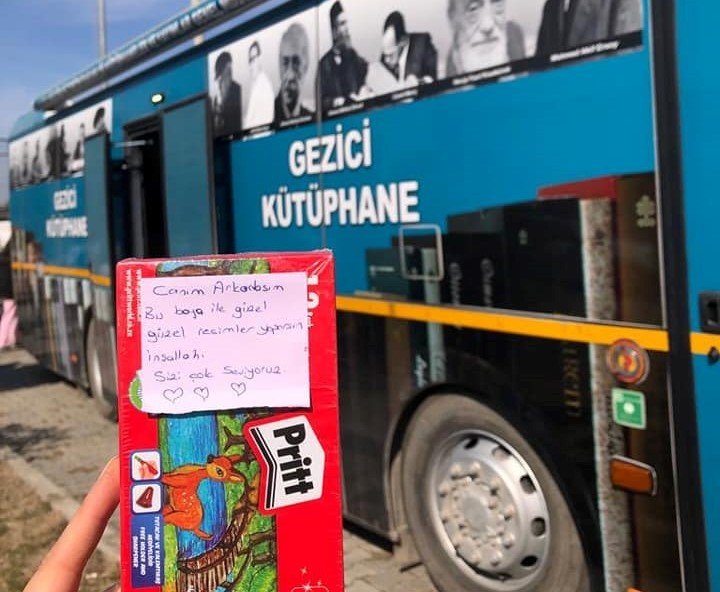 GEZİCİ
KÜTÜPHANE
GEZİCİ
KÜTÜPHANE
Canım Arkadaşım
Bu boya ile güzel
güzel resimler yaparsın
inşallah.
Sizi çok seviyoruz
Pritt